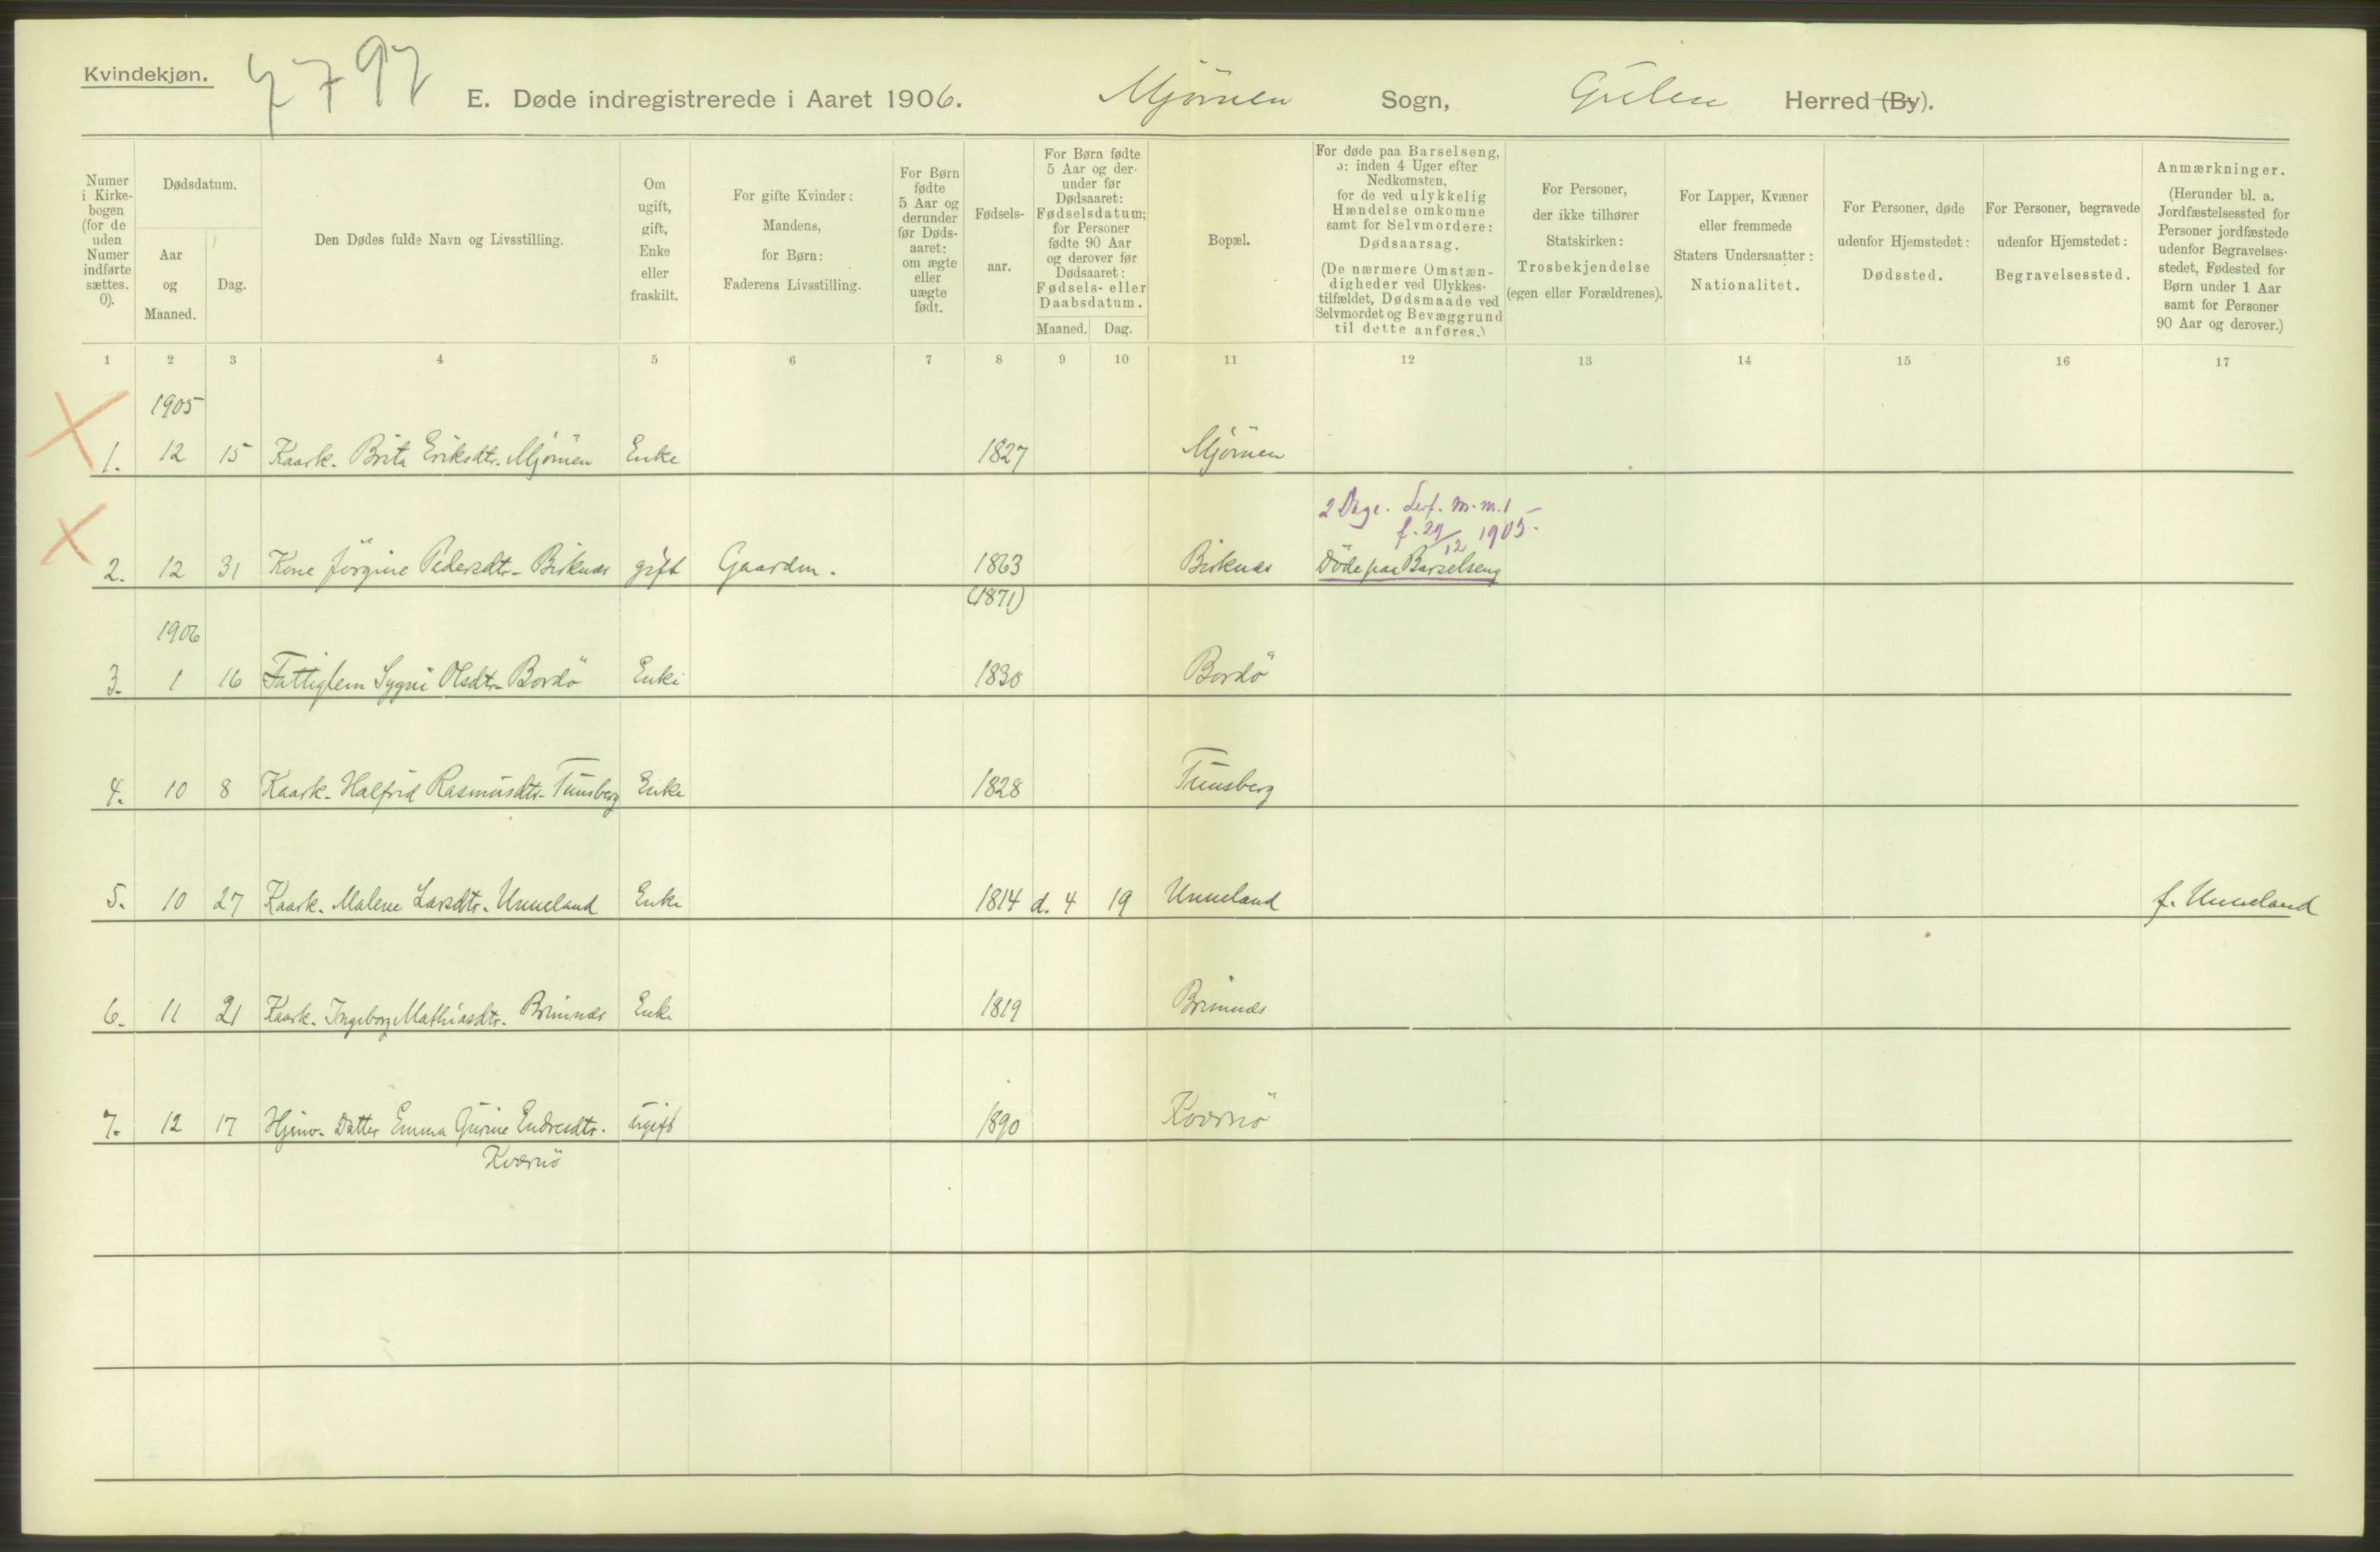 Kvindekjøn.
4797
E. Døde indregistrerede i Aaret 1906. Mjömen Sogn, Gulen Herred (By).
Numer i Kirkebogen (for de uden Numer indførte sættes. 0).
Dødsdatum.
Aar og Maaned.
Dag.
Den Dødes fulde Navn og Livsstilling.
Om ugift, gift, Enke eller fraskilt.
For gifte Kvinder: Mandens, for Børn: Faderens Livsstilling.
For Børn fødte 5 Aar og derunder før Dødsaaret: om ægte eller uægte født.
Fødselsaar.
For Børn fødte 5 Aar og derunder før Dødsaaret: Fødselsdatum; for Personer fødte 90 Aar og derover før Dødsaaret: Fødsels- eller Daabsdatum.
Maaned. Dag.
Bopæl.
For døde paa Barselseng, ɔ: inden 4 Uger efter Nedkomsten, for de ved ulykkelig Hændelse omkomne samt for Selvmordere: Dødsaarsag.
(De nærmere Omstændigheder ved Ulykkestilfældet, Dødsmaade ved Selvmordet og Bevæggrund til dette anføres.)
For Personer, der ikke tilhører Statskirken: Trosbekjendelse (egen eller Forældrenes).
For Lapper, Kvæner eller fremmede Staters Undersaatter: Nationalitet.
For Personer, døde udenfor Hjemstedet: Dødssted.
For Personer, begravede udenfor Hjemstedet: Begravelsessted.
Anmærkninger.
(Herunder bl. a. Jordfæstelsessted for Personer jordfæstede udenfor Begravelsesstedet, Fødested for Børn under 1 Aar samt for Personer 90 Aar og derover.)
1 2 3 4 5 6 7 8 9 10 11 12 13 14 15 16 17
1905
1. 12 15 Kaark. Brita Eriksdtr. Mjömen Enke 1827 Mjömen
2 Dage. m.m.
f. 29/12 1905.
2. 12 31 Kone Jörgine Pedersdtr. Birknæs gift Gaardm. 1863 Birknæs Døde paa Barselseng
(1871)
1906
3. 1 16 Fattiglem Sygni Olsdtr. Bordö Enke 1830 Bordö
4. 10 8 Kaark. Halfrid Rasmusdtr. Tunsberg Enke 1828 Tunsberg
5. 10 27 Kaark. Malene Larsdtr. Unneland Enke 1814 d. 4 19 Unneland f. Unneland
6. 11 21 Kaark. Ingeborg Mathiasdtr. Brimnæs Enke 1819 Brimnæs
7. 12 17 Hjmv. Datter Emma Gurine Endresdtr. ugift 1890 Kværnö
Kværnö